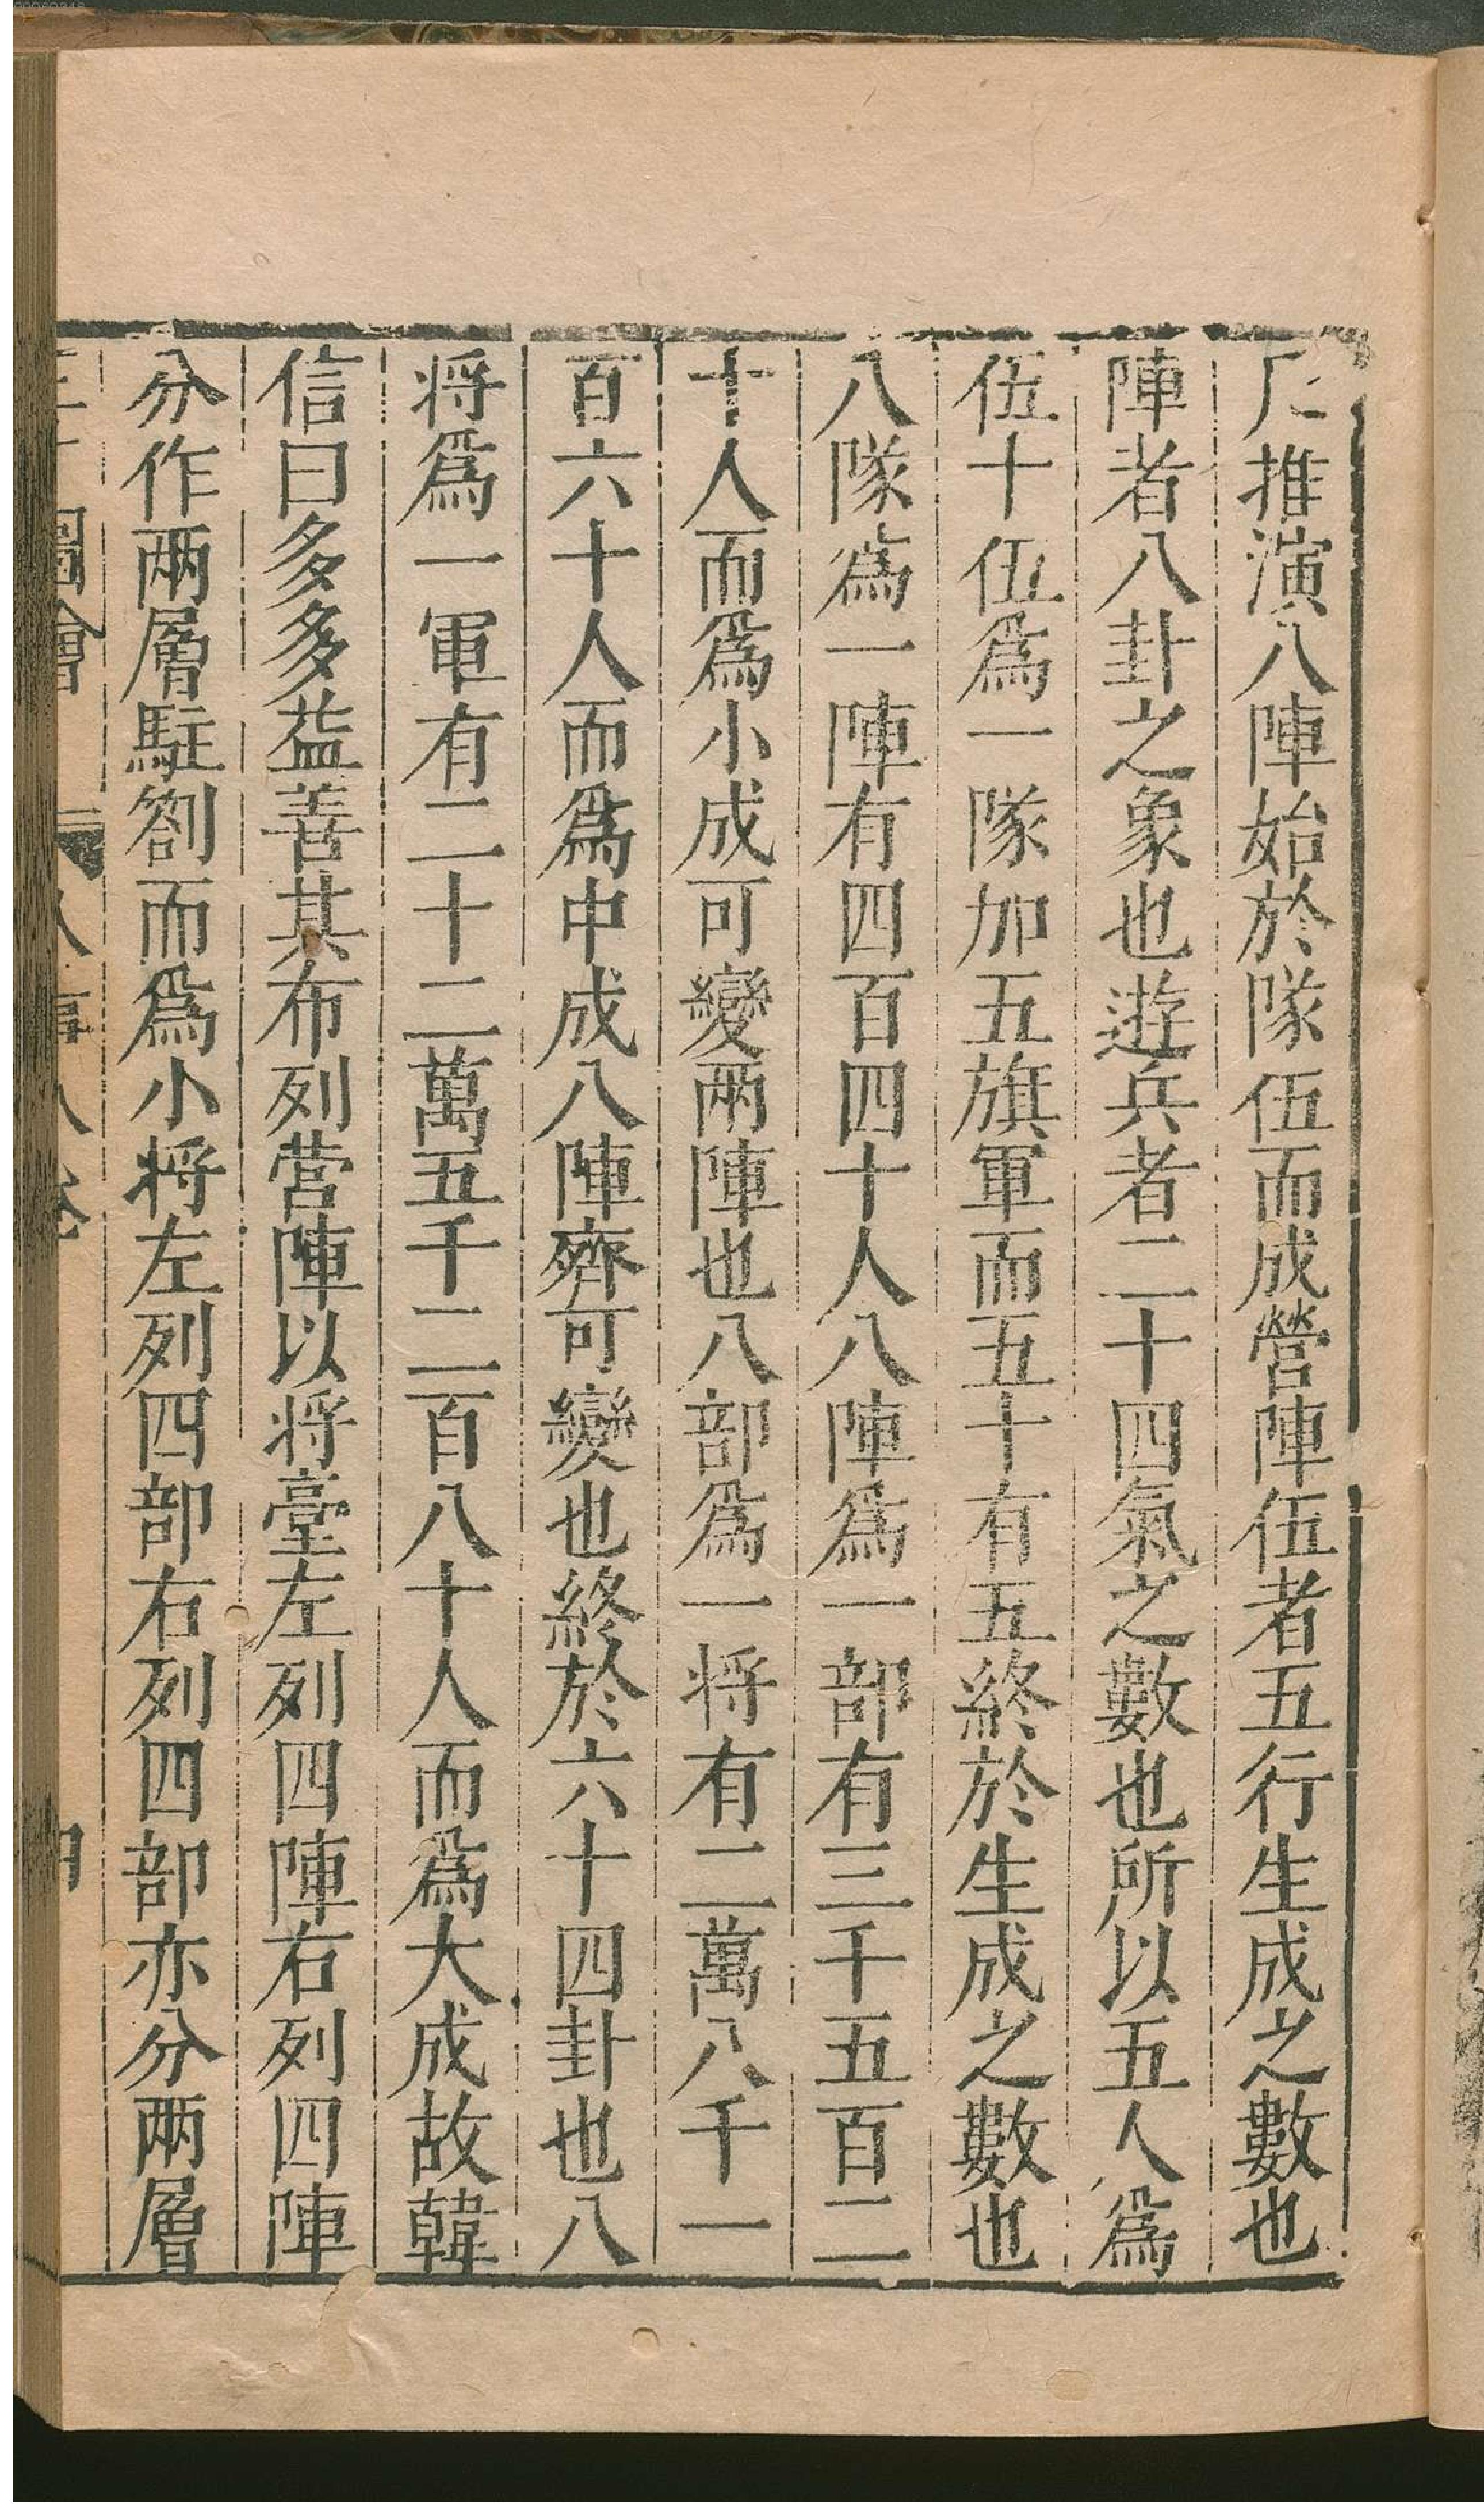 凡推演八陣始於隊伍而成營陣伍者五行生成之數也
陣者八卦之象也遊兵者二十四氣之數也所以五人為
伍十伍爲一隊加五旗軍而五十有五終於生成之數也
八隊爲一陣有四百四十人八陣爲一部有三千五百二
十人而爲小成可變兩陣也八部爲一将有二萬八千一
百六十人而爲中成八陣齊可變也終於六十四卦也八
将爲一軍有二十二萬五千二百八十人而爲大成故韓
信曰多多益善其布列营陣以将臺左列四陣右列四陣
分作兩層駐劄而爲小将左列四部右列四部亦分两層
圖會 人事八卷 四